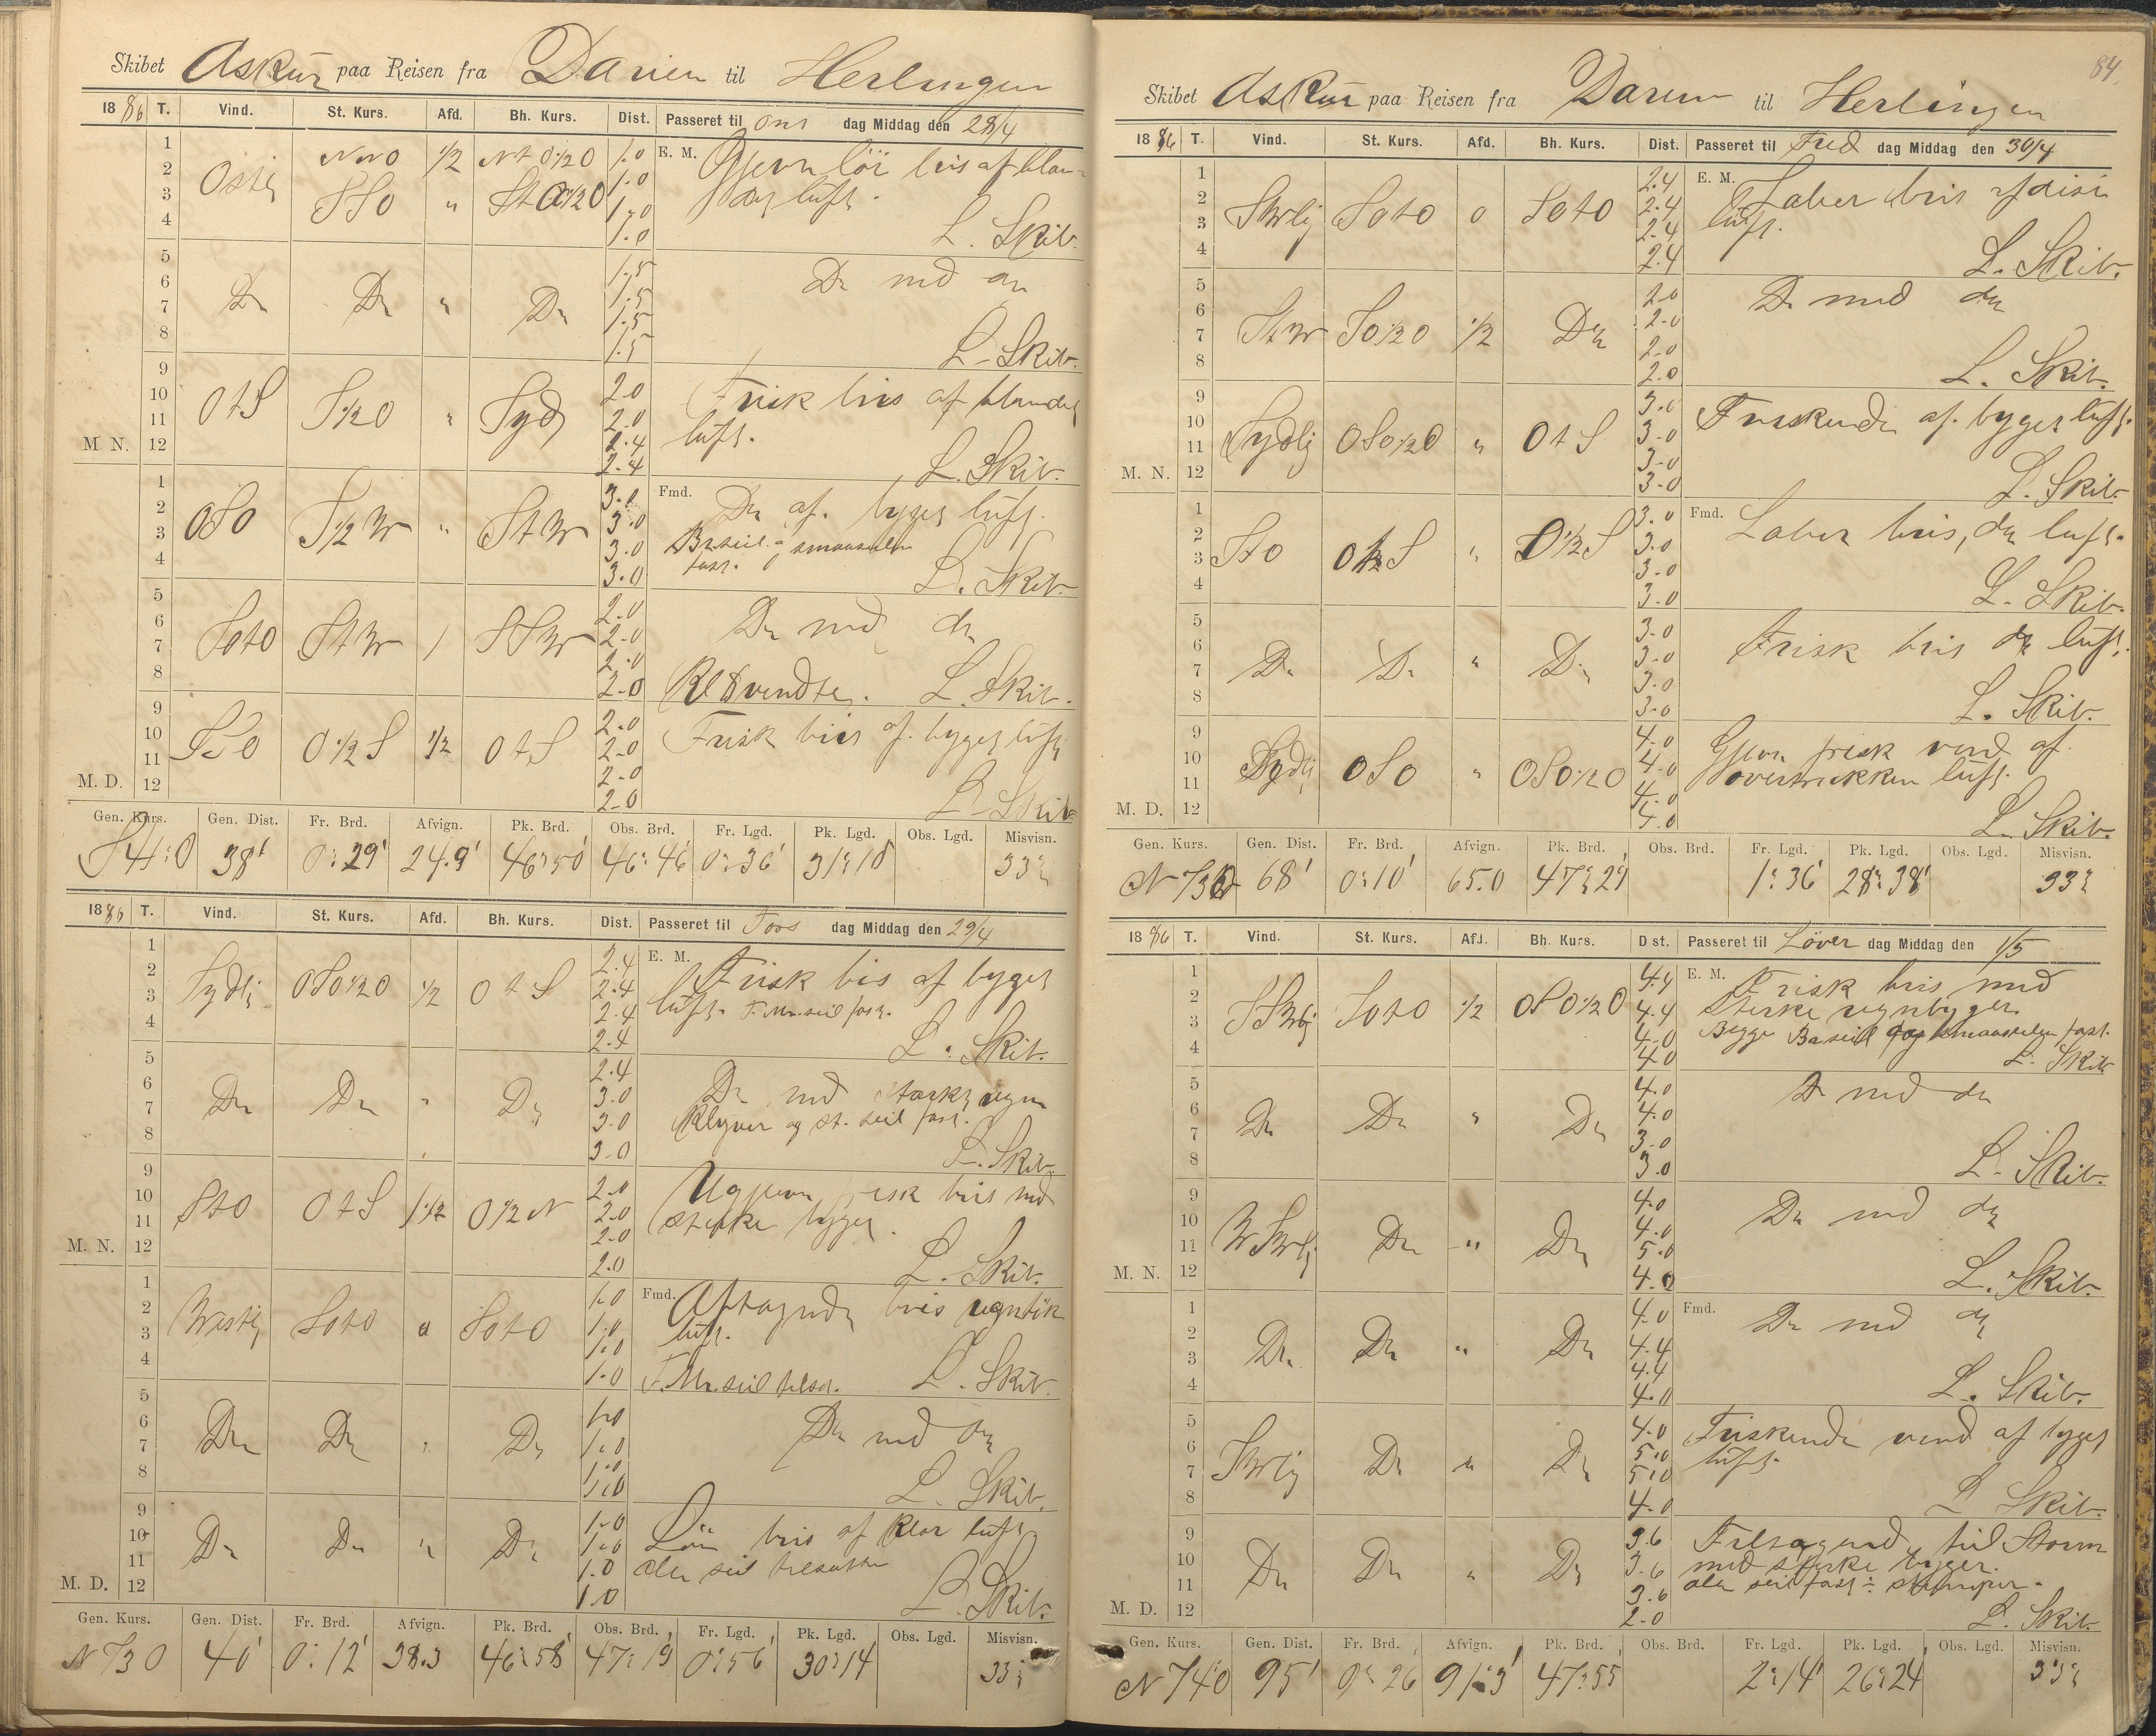 Skibet Askur paa Reisen fra Darien til Herlingen
1886 T. Vind. St. Kurs. Afd. Bh. Kurs. Dist. Passeret til Ons dag Middag den 28/4
1 2 3 4
Ostlig NNO 1/2 NtO1/2O 1.0 1.0
SSO " StO1/2O 1.0 1.0
E. M. Ojevn lör bris af blan-
det luft.
L. Skib.
5 6 7 8
Do Do " Do 1.5 1.5 1.5 1.5
Do med do
L. Skib.
9 10 11 M. N. 12
OtS S1/2O " Syd 2.0 2.0 2.4 2.4
Frisk bris af blandet
luft.
L. Skib.
1 2 3 4
OSO S1/2W " StW 3.0 3.0 3.0 3.0
Fmd. Do af. byget luft.
Br. seil og smaaseilen
fast.
L. Skib.
5 6 7 8
SOtO StW 1 SSW 2.0 2.0 2.0 2.0
Do med do
Kl 8 vendte. L. Skib.
9 10 11 M. D. 12
StO O1/2S 1/2 OtS 2.0 2.0 2.0 2.0
Frisk bris af. byget luft
L. Skib.
Gen. Kurs. Gen. Dist. Fr. Brd. Afvign. Pk. Brd. Obs. Brd. Fr. Lgd. Pk. Lgd. Obs. Lgd. Misvisn.
S41°O 38' 0° 29' 24.9' 46° 50' 46° 46' 0° 36' 31° 10 33
1886 T. Vind. St. Kurs. Afd. Bh. Kurs. Dist. Passeret til Tors dag Middag den 29/4
1 2 3 4
Sydlig OSO1/2O 1/2 OtS 2.4 2.4 2.4 2.4
E. M. Frisk bis af byget
luft. F. Mr. seil fast.
L. Skib.
5 6 7 8
Do Do " Do 2.4 3.0 3.0 3.0
Do med stærk regn
Klyver og St. seil fast.
L. Skib.
9 10 11 M. N. 12
StO OtS 1 1/2 O1/2N 2.0 2.0 2.0 2.0
Ugjevn frisk bris med
sterke byger.
L. Skib.
1 2 3 4
Westlig SOtO o SOtO 1.0 1.0 1.0 1.0
Fmd. Aftagende bris regntyk
luft.
F. Mr. seil tilsat. L. Skib.
5 6 7 8
Do Do " Do 1.0 1.0 1.0 1.0
Do med do
L. Skib.
9 10 11 M. D. 12
Do Do " Do 1.0 1.0 1.0 1.0
Lör bris af klar luft
alle seil tilsatte
L. Skib.
Gen. Kurs. Gen. Dist. Fr. Brd. Afvign. Pk. Brd. Obs. Brd. Fr. Lgd. Pk. Lgd. Obs. Lgd. Misvisn.
N73O 40' 0° 12' 38.3 46° 58' 47° 19' 0° 56' 30° 14 33
84
Skibet Askur paa Reisen fra Darien til Herlingen
1886 T. Vind. St. Kurs. Afd. Bh. Kurs. Dist. Passeret til Fred dag Middag den 30/4
1 2 3 4
SWlig SOtO o SOtO 2.4 2.4 2.4 2.4
E. M. Laber bris af disi
luft.
L. Skib.
5 6 7 8
StW SO1/2O 1/2 Do 2.0 2.0 2.0 2.0
Do med do
L. Skib.
9 10 11 M. N. 12
Sydlig OSO1/2O " OtS 3.0 3.0 3.0 3.0
Friskende af. byget luft.
L. Skib.
1 2 3 4
StO O1/2S " O1/2S 3.0 3.0 3.0 3.0
Fmd. Laber bris, do luft.
L. Skib.
5 6 7 8
Do Do " Do 3.0 3.0 3.0 3.0
Frisk bris do luft.
L. Skib.
9 10 11 M. D. 12
Sydlig OSO " OSO1/2O 4.0 4.0 4.0 4.0
Gjevn frisk vend af.
overtrukken luft.
L. Skib.
Gen. Kurs. Gen. Dist. Fr. Brd. Afvign. Pk. Brd. Obs. Brd. Fr. Lgd. Pk. Lgd. Obs. Lgd. Misvisn.
68' 0° 10' 65.0 47° 29' 1° 36' 28° 38' 33
1886 T. Vind. St. Kurs. Afd. Bh. Kurs. Dist. Passeret til Löver dag Middag den 1/5
1 2 3 4
SSWlig SOtO 1/2 OSO1/2O 4.4 4.4 4.0 4.0
E. M. Frisk bris med
sterke regnbyger.
Begge Br seil og smaaseilen fast.
L. Skib
5 6 7 8
Do Do " Do 4.0 4.0 3.0 3.0
Do med do
L. Skib.
9 10 11 M. N. 12
WSWlig Do " Do 4.0 4.0 5.0 4.0
Do med do
L. Skib.
1 2 3 4
Do Do " Do 4.0 4.4 4.4 4.0
Fmd. Do med do
L. Skib.
5 6 7 8
SWlig Do " Do 4.0 5.0 5.0 4.0
Friskende vend af byget
luft.
L. Skib.
9 10 11 M. D. 12
Do Do " Do 3.6 3.6 3.6 2.0
Tiltagend til Storm
med sterke byger.
alle seil fast ÷ stumper.
L. Skib.
Gen. Kurs. Gen. Dist. Fr. Brd. Afvign. Pk. Brd. Obs. Brd. Fr. Lgd. Pk. Lgd. Obs. Lgd. Misvisn.
N74°O 95' 0° 26' 91.3' 47° 55' 2° 14' 26° 24' 33